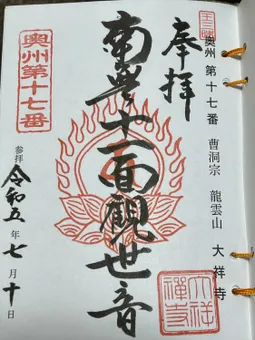 奥州 第十七番 曹洞宗 龍雲山 大祥寺
奉拝
南無十一面觀世音
大祥
禪寺
奥州第十七番
参拝 令和五年七月十日